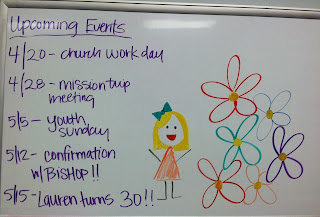 Upcoming Events
4/20 - church work day
4/28 - mission trip
meeting
5/5 - youth
sunday
5/12 - confirmation
w/ BISHOP!!
5/15 - Lauren turns 30!!